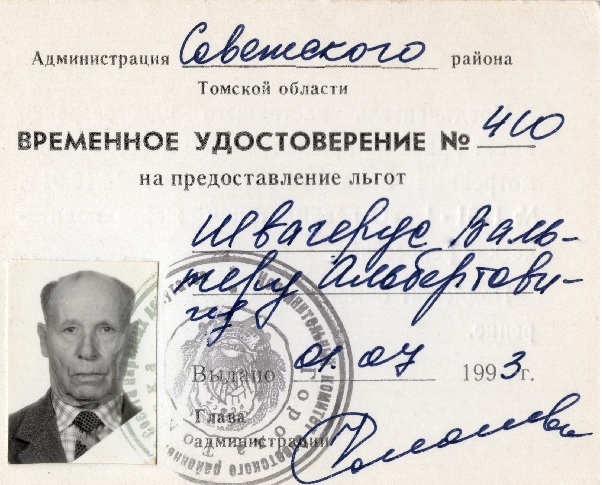 Администрация Советского района
Томской области
ВРЕМЕННОЕ УДОСТОВЕРЕНИЕ № 410
на предоставление льгот
Швагерус Валь-
теру Альбертови-
чу
Выдано 01.07 1993г.
Глава
администрации